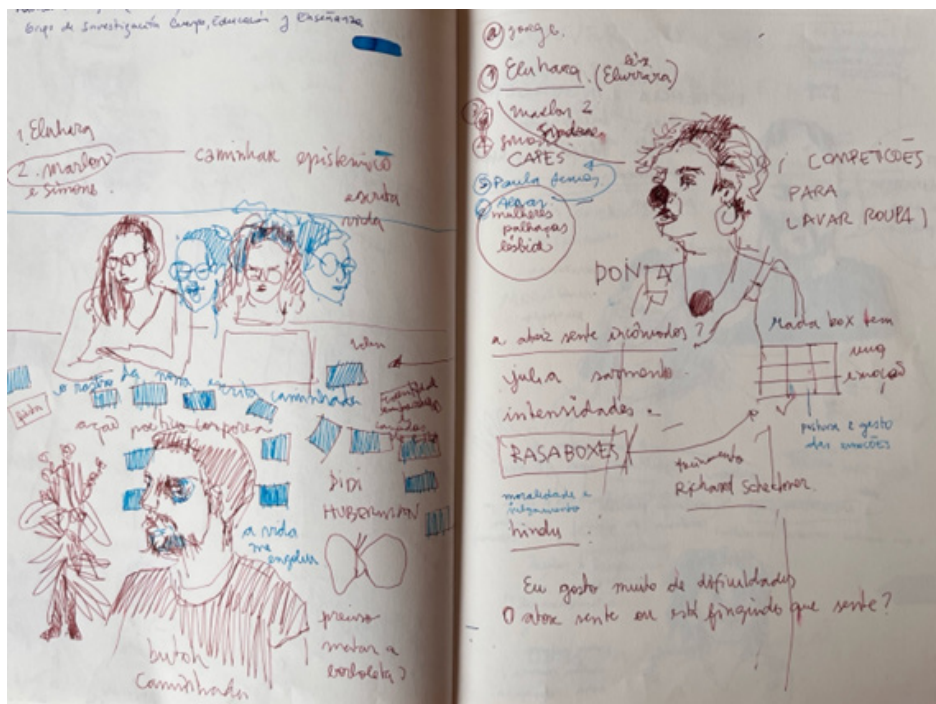 Grupo de Investigación Cuerpo, Educación y Enseñanza
1. Eluhara
2. Marlon
e Simone.
caminhar epistemico
escrita
vida
o rastro da nossa escrita caminhada
ação poetico corporea
DIDI
HUBERMAN
a vida
me
engoliu
preciso
matar a
borboleta?
butoh
Caminhada
jorge.
1 Eluhara. (Elurrara)
Marlon 2
CAPES
5 Paula
mulheres
palhaças
lésbica
¡ COMPETIÇÕES
PARA
LAVAR ROUPA!
DONTA
a atriz sente incômodos?
julia sarmento
intensidades.
RASABOXES
moralidade e
hindu
treinamento
Richard Schechner.
cada box tem
uma
emoção
postura e gesto
das emoções
Eu gosto muito de dificuldades
O ator sente ou está fingindo que sente?